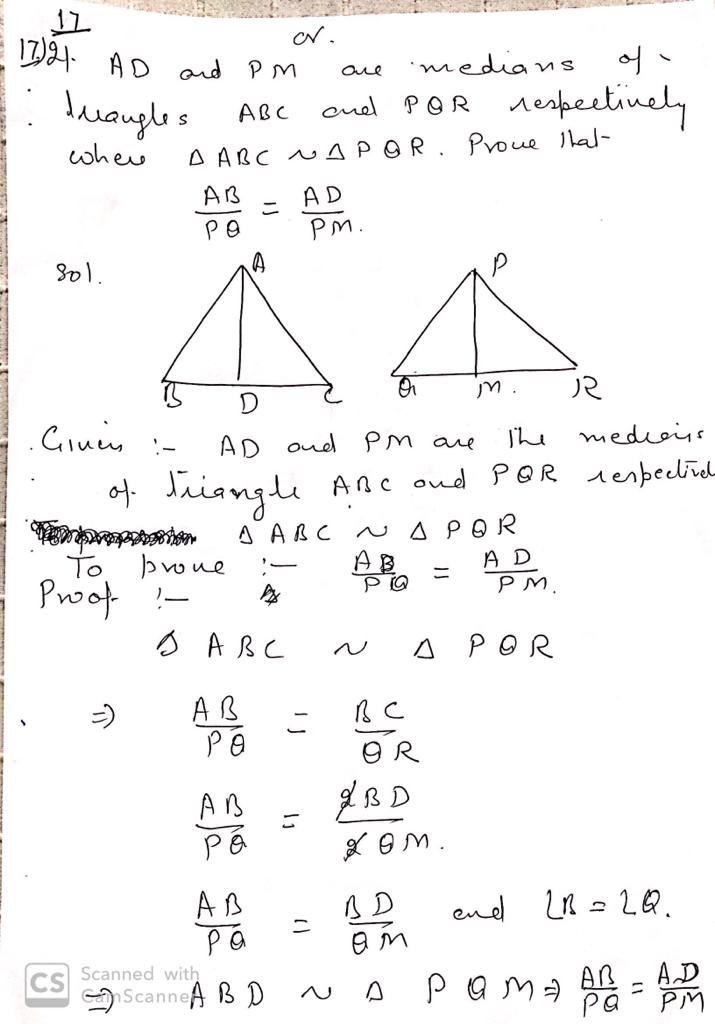 17
or.
17) 21. AD and PM are medians of
triangles ABC and PQR respectively
where Δ ABC ~ Δ PQR. Prove that
AB/PQ = AD/PM.
Sol.
A P
B D C Q M. R
Given :- AD and PM are the medians
of triangle ABC and PQR respectivel
Δ ABC ~ Δ PQR
To prove :- AB/PQ = AD/PM.
Proof :-
Δ ABC ~ Δ PQR
⇒ AB/PQ = BC/QR
AB/PQ = 2BD/2QM.
AB/PQ = BD/QM and ∠B = ∠Q.
⇒ ABD ~ Δ PQM ⇒ AB/PQ = AD/PM
CS Scanned with
CamScanner